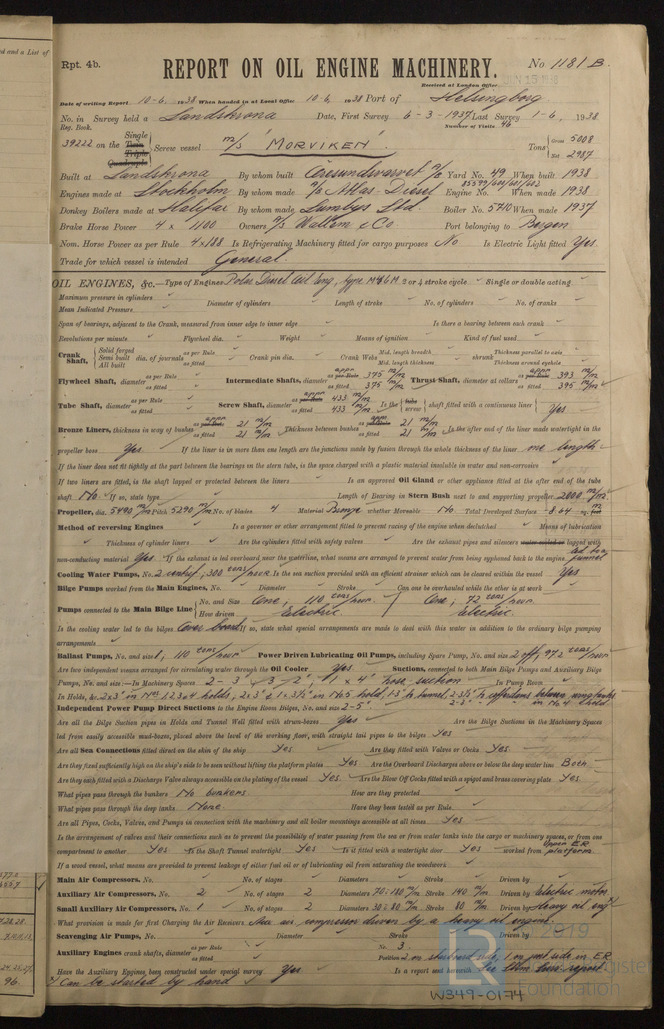 Rpt. 4b.
REPORT ON OIL ENGINE MACHINERY.
No 1181 B.
Received at London Office
Date of writing Report 10-6. 1938 When handed in at Local Office 10-6. 1938 Port of Helsingborg
No. in Survey held a Landskrona Date, First Survey 6-3-1937 Last Survey 1-6, 1938
Reg. Book. Number of Visits 46
39222 on the Single Twin Triple Quadruple Screw vessel m/s "MORVIKEN". Tons Gross 5008 Net 2987
Built at Landskrona By whom built Öresundsvarvet A/B Yard No. 49 When built 1938
Engines made at Stockholm By whom made A/B Atlas-Diesel Engine No. When made 1938
Donkey Boilers made at Halifax By whom made Lumbys Ltd Boiler No. 5710 When made 1937
Brake Horse Power 4 x 1100 Owners A/S Wallem & Co Port belonging to Bergen
Nom. Horse Power as per Rule 4x188 Is Refrigerating Machinery fitted for cargo purposes No Is Electric Light fitted Yes.
Trade for which vessel is intended General.
OIL ENGINES, &c.—Type of Engines Polar Diesel Oil Eng, type M46M 2 or 4 stroke cycle Single or double acting
Maximum pressure in cylinders Diameter of cylinders Length of stroke No. of cylinders No. of cranks
Mean Indicated Pressure
Span of bearings, adjacent to the Crank, measured from inner edge to inner edge Is there a bearing between each crank
Revolutions per minute Flywheel dia. Weight Means of ignition Kind of fuel used
Crank Shaft, Solid forged Semi built All built dia. of journals as per Rule as fitted Crank pin dia. Crank Webs Mid. length breadth Mid. length thickness shrunk Thickness parallel to axis Thickness around eyehole
Flywheel Shaft, diameter as per Rule as fitted Intermediate Shafts, diameter as per Rule appr 375 m/m as fitted 375 m/m Thrust Shaft, diameter at collars as per Rule appr 393 m/m as fitted 395 m/m
Tube Shaft, diameter as per Rule as fitted Screw Shaft, diameter as per Rule appr 433 m/m as fitted 433 m/m Is the tube screw shaft fitted with a continuous liner Yes
Bronze Liners, thickness in way of bushes as per Rule appr 21 m/m as fitted 21 m/m Thickness between bushes as per Rule appr 21 m/m as fitted 21 m/m Is the after end of the liner made watertight in the
propeller boss Yes. If the liner is in more than one length are the junctions made by fusion through the whole thickness of the liner one length
If the liner does not fit tightly at the part between the bearings on the stern tube, is the space charged with a plastic material insoluble in water and non-corrosive
If two liners are fitted, is the shaft lapped or protected between the liners Is an approved Oil Gland or other appliance fitted at the after end of the tube
shaft No. If so, state type Length of Bearing in Stern Bush next to and supporting propeller 2000 m/m
Propeller, dia. 5490 m/m Pitch 5290 m/m No. of blades 4 Material Bronze whether Moveable No Total Developed Surface 8.64
Method of reversing Engines Is a governor or other arrangement fitted to prevent racing of the engine when declutched Means of lubrication
Thickness of cylinder liners Are the cylinders fitted with safety valves Are the exhaust pipes and silencers water cooled or lagged with
non-conducting material Yes. If the exhaust is led overboard near the waterline, what means are arranged to prevent water from being syphoned back to the engine led to a funnel
Cooling Water Pumps, No. 2 centrif, 300 tons/hour Is the sea suction provided with an efficient strainer which can be cleared within the vessel Yes
Bilge Pumps worked from the Main Engines, No. Diameter Stroke Can one be overhauled while the other is at work
Pumps connected to the Main Bilge Line No. and Size One, 110 tons/hour. One, 72 tons/hour.
How driven Electric. Electric.
Is the cooling water led to the bilges Over board If so, state what special arrangements are made to deal with this water in addition to the ordinary bilge pumping
arrangements
Ballast Pumps, No. and size 1, 110 tons/hour Power Driven Lubricating Oil Pumps, including Spare Pump, No. and size 2 off, 97.2 tons/hour
Are two independent means arranged for circulating water through the Oil Cooler Yes Suctions, connected to both Main Bilge Pumps and Auxiliary Bilge
Pumps, No. and size:—In Machinery Spaces 2 - 3", 3 - 2", 1 x 4" hose suction In Pump Room
In Holds, &c. 2x3" in No 1, 2, 3 & 4 holds, 2x3" & 1x3½" in No 5 hold 1-3" h. tunnel.
Independent Power Pump Direct Suctions to the Engine Room Bilges, No. and size 2-5".
Are all the Bilge Suction pipes in Holds and Tunnel Well fitted with strum-boxes Yes Are the Bilge Suctions in the Machinery Spaces
led from easily accessible mud-boxes, placed above the level of the working floor, with straight tail pipes to the bilges Yes
Are all Sea Connections fitted direct on the skin of the ship Yes. Are they fitted with Valves or Cocks Yes.
Are they fixed sufficiently high on the ship's side to be seen without lifting the platform plates Yes Are the Overboard Discharges above or below the deep water line Both
Are they each fitted with a Discharge Valve always accessible on the plating of the vessel Yes. Are the Blow Off Cocks fitted with a spigot and brass covering plate Yes
What pipes pass through the bunkers No bunkers. How are they protected
What pipes pass through the deep tanks None. Have they been tested as per Rule
Are all Pipes, Cocks, Valves, and Pumps in connection with the machinery and all boiler mountings accessible at all times Yes
Is the arrangement of valves and their connections such as to prevent the possibility of water passing from the sea or from water tanks into the cargo or machinery spaces, or from one
compartment to another Yes Is the Shaft Tunnel watertight Yes Is it fitted with a watertight door Yes worked from Upper ER platform
If a wood vessel, what means are provided to prevent leakage of either fuel oil or of lubricating oil from saturating the woodwork
Main Air Compressors, No. No. of stages Diameters Stroke Driven by
Auxiliary Air Compressors, No. 2 No. of stages 2 Diameters 70 & 180 m/m Stroke 140 m/m Driven by Electric motor
Small Auxiliary Air Compressors, No. 1 No. of stages 2 Diameters 30 & 80 m/m Stroke 80 m/m Driven by Heavy oil eng
What provision is made for first Charging the Air Receivers Aux air compressor driven by a heavy oil engine.
Scavenging Air Pumps, No. Diameter Stroke Driven by
Auxiliary Engines crank shafts, diameter as per Rule as fitted No. 3. Position 2 on starboard side, 1 on port side in ER
Have the Auxiliary Engines been constructed under special survey Yes Is a report sent herewith
Can be started by hand
© 2019
LR
Foundation
W349-0174